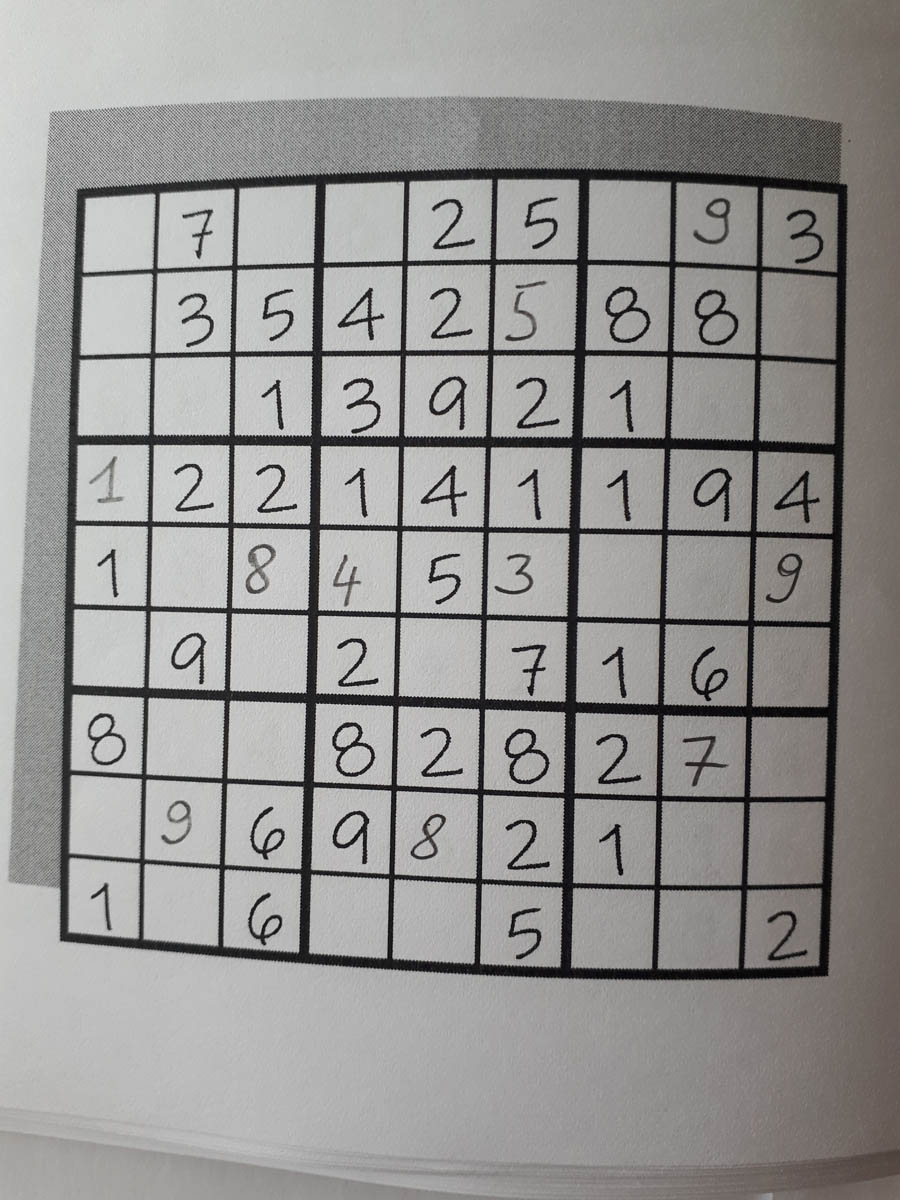 7 2 5 9 3
3 5 4 2 5 8 8
1 3 9 2 1
1 2 2 1 4 1 1 9 4
1 8 4 5 3 9
9 2 7 1 6
8 8 2 8 2 7
9 6 9 8 2 1
1 6 5 2